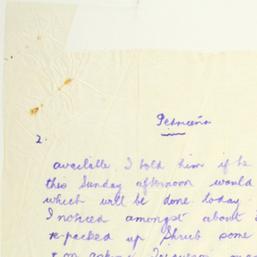 2.
available I told him if he
this Sunday afternoon would
which will be done today.
I noticed amongst about
re-packed up Shrub some
on asking